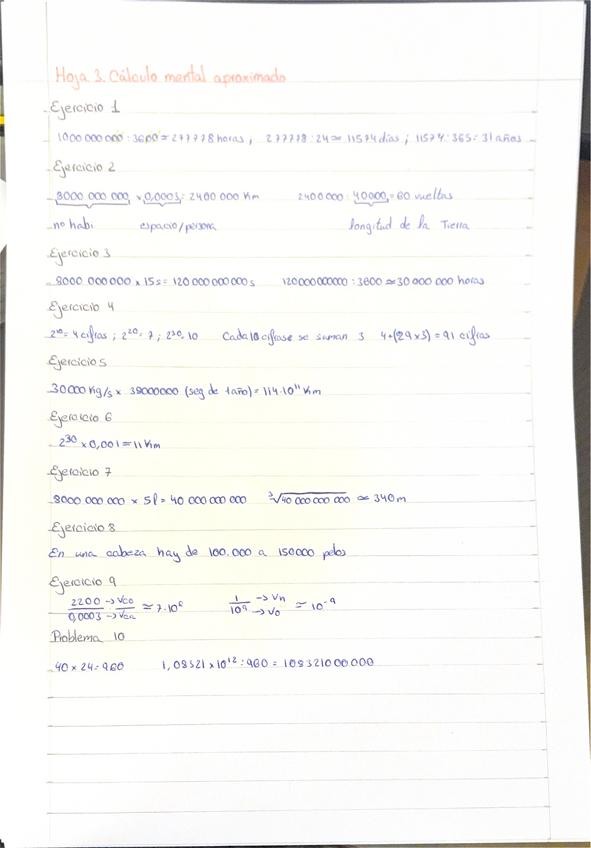 Hoja 3. Cálculo mental aproximado
Ejercicio 1
1000 000 000 : 3600 ≃ 277778 horas, 277778 : 24 ≃ 11574 días ; 11574 : 365 = 31 años
Ejercicio 2
8000 000 000 × 0,0003 = 2400 000 Km 2400000 : 40000 = 60 vueltas
nº habi espacio/persona longitud de la Tierra
Ejercicio 3
8000 000000 × 15s = 120 000 000 000 s 120000000000 : 3600 ≃ 30 000 000 horas
Ejercicio 4
2¹⁰ = 4 cifras ; 2²⁰ = 7 ; 2³⁰ = 10 Cada 10 cifras se suman 3 4+(29×3) = 91 cifras
Ejercicio 5
30000 Kg/s × 38000000 (seg de 1 año) = 114·10¹¹ Km
Ejercicio 6
2³⁰ × 0,001 = 11 Km
Ejercicio 7
8000 000 000 × 5l = 40 000 000 000 ³√40 000 000 000 ≃ 340 m
Ejercicio 8
En una cabeza hay de 100.000 a 150000 pelos
Ejercicio 9
2200 → Vco / 0,0003 → Vca ≃ 7·10⁶ 1 → Vn / 10⁹ → Vo ≃ 10⁻⁹
Problema 10
40 × 24 = 960 1,08321 × 10¹² : 960 = 108321000000